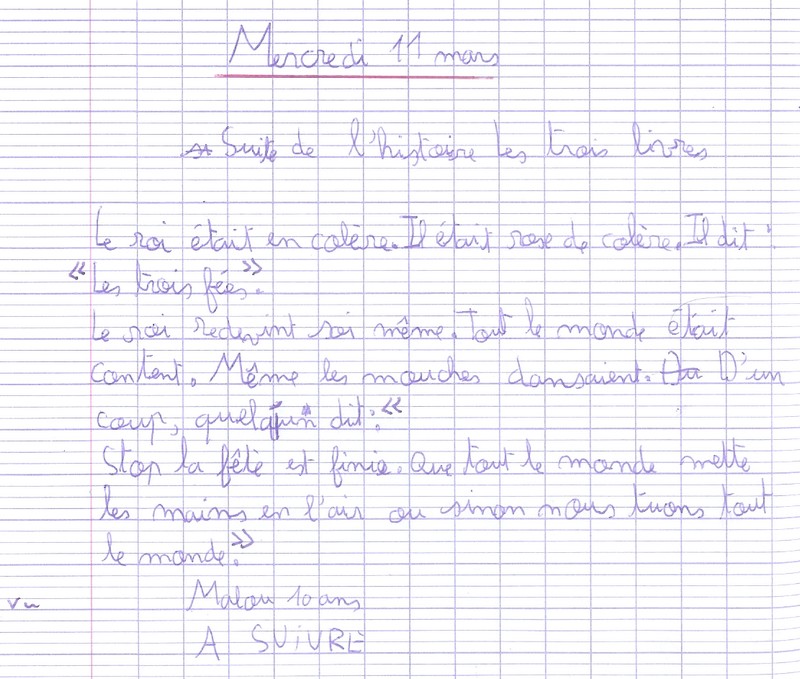 Mercredi 11 mars
Suite de l'histoire Les trois livres
Le roi était en colère. Il était rose de colère. Il dit :
« Les trois fées ».
Le roi redevint soi même. Tout le monde était
content. Même les mouches dansaient. D'un
coup, quelqu'un dit : «
Stop la fête est finie. Que tout le monde mette
les mains en l'air ou sinon nous tuons tout
le monde. »
Malou 10 ans
vu
A SUiVRE